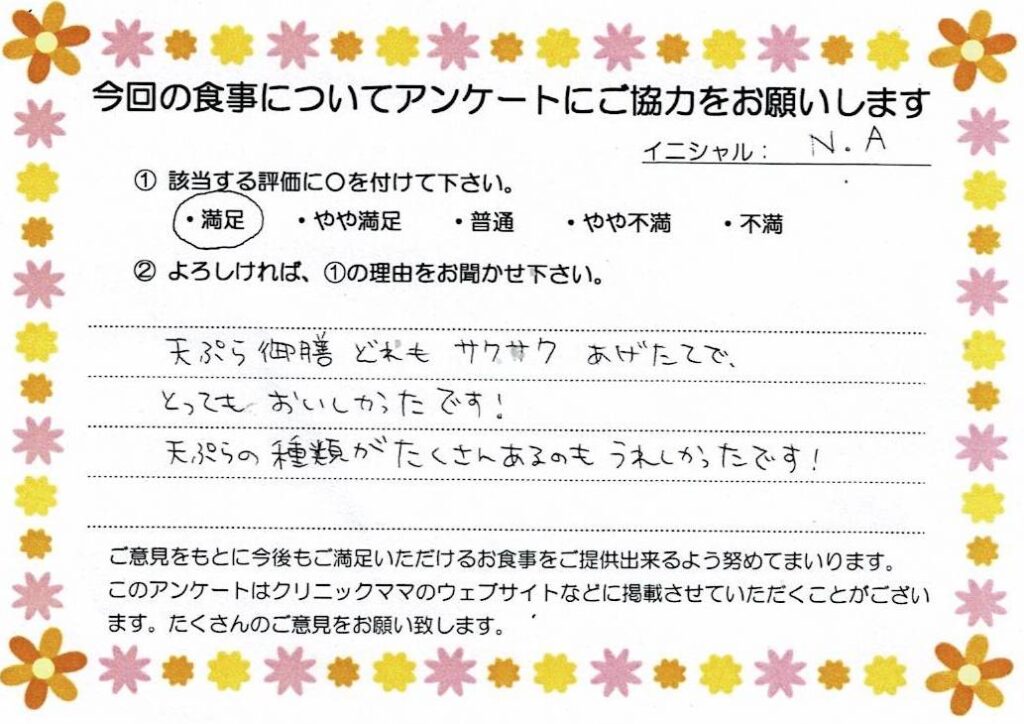 今回の食事についてアンケートにご協力をお願いします
イニシャル： N.A
① 該当する評価に○を付けて下さい。
・満足 ・やや満足 ・普通 ・やや不満 ・不満
② よろしければ、①の理由をお聞かせ下さい。
天ぷら御膳 どれも サクサク あげたてで、
とっても おいしかったです!
天ぷらの種類がたくさんあるのも うれしかったです!
ご意見をもとに今後もご満足いただけるお食事をご提供出来るよう努めてまいります。
このアンケートはクリニックママのウェブサイトなどに掲載させていただくことがござい
ます。たくさんのご意見をお願い致します。